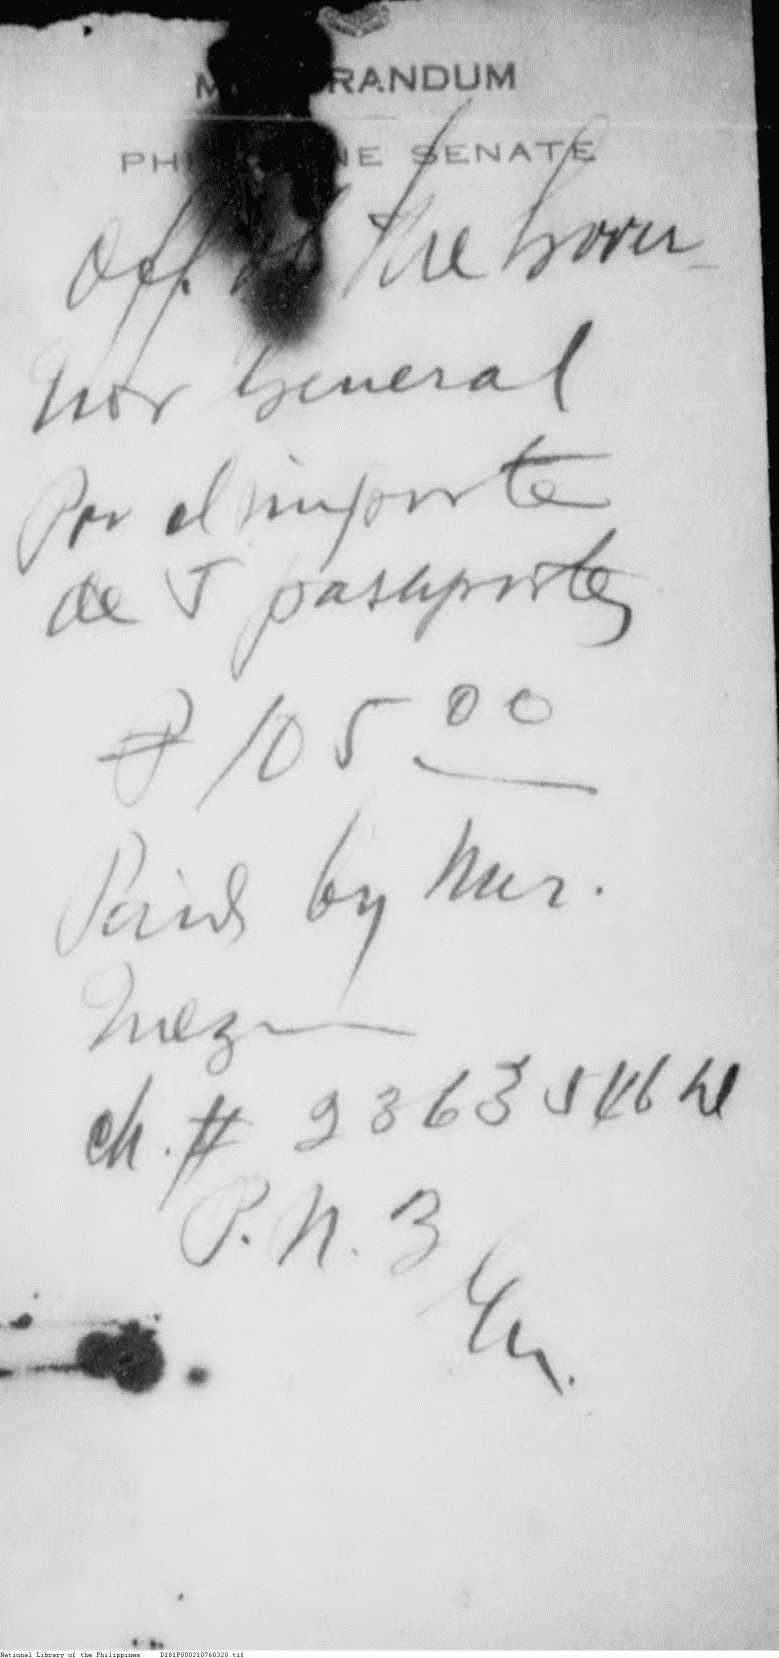 MEMORANDUM
PHILIPPINE SENATE
Off. of the Gover-
nor General
Por el importe
de 5 passportes
₱ 105 00
Paid by Mr.
Quezon
ch. # 2363546
P. N. B
National Library of the Philippines D181P000210760320.tif